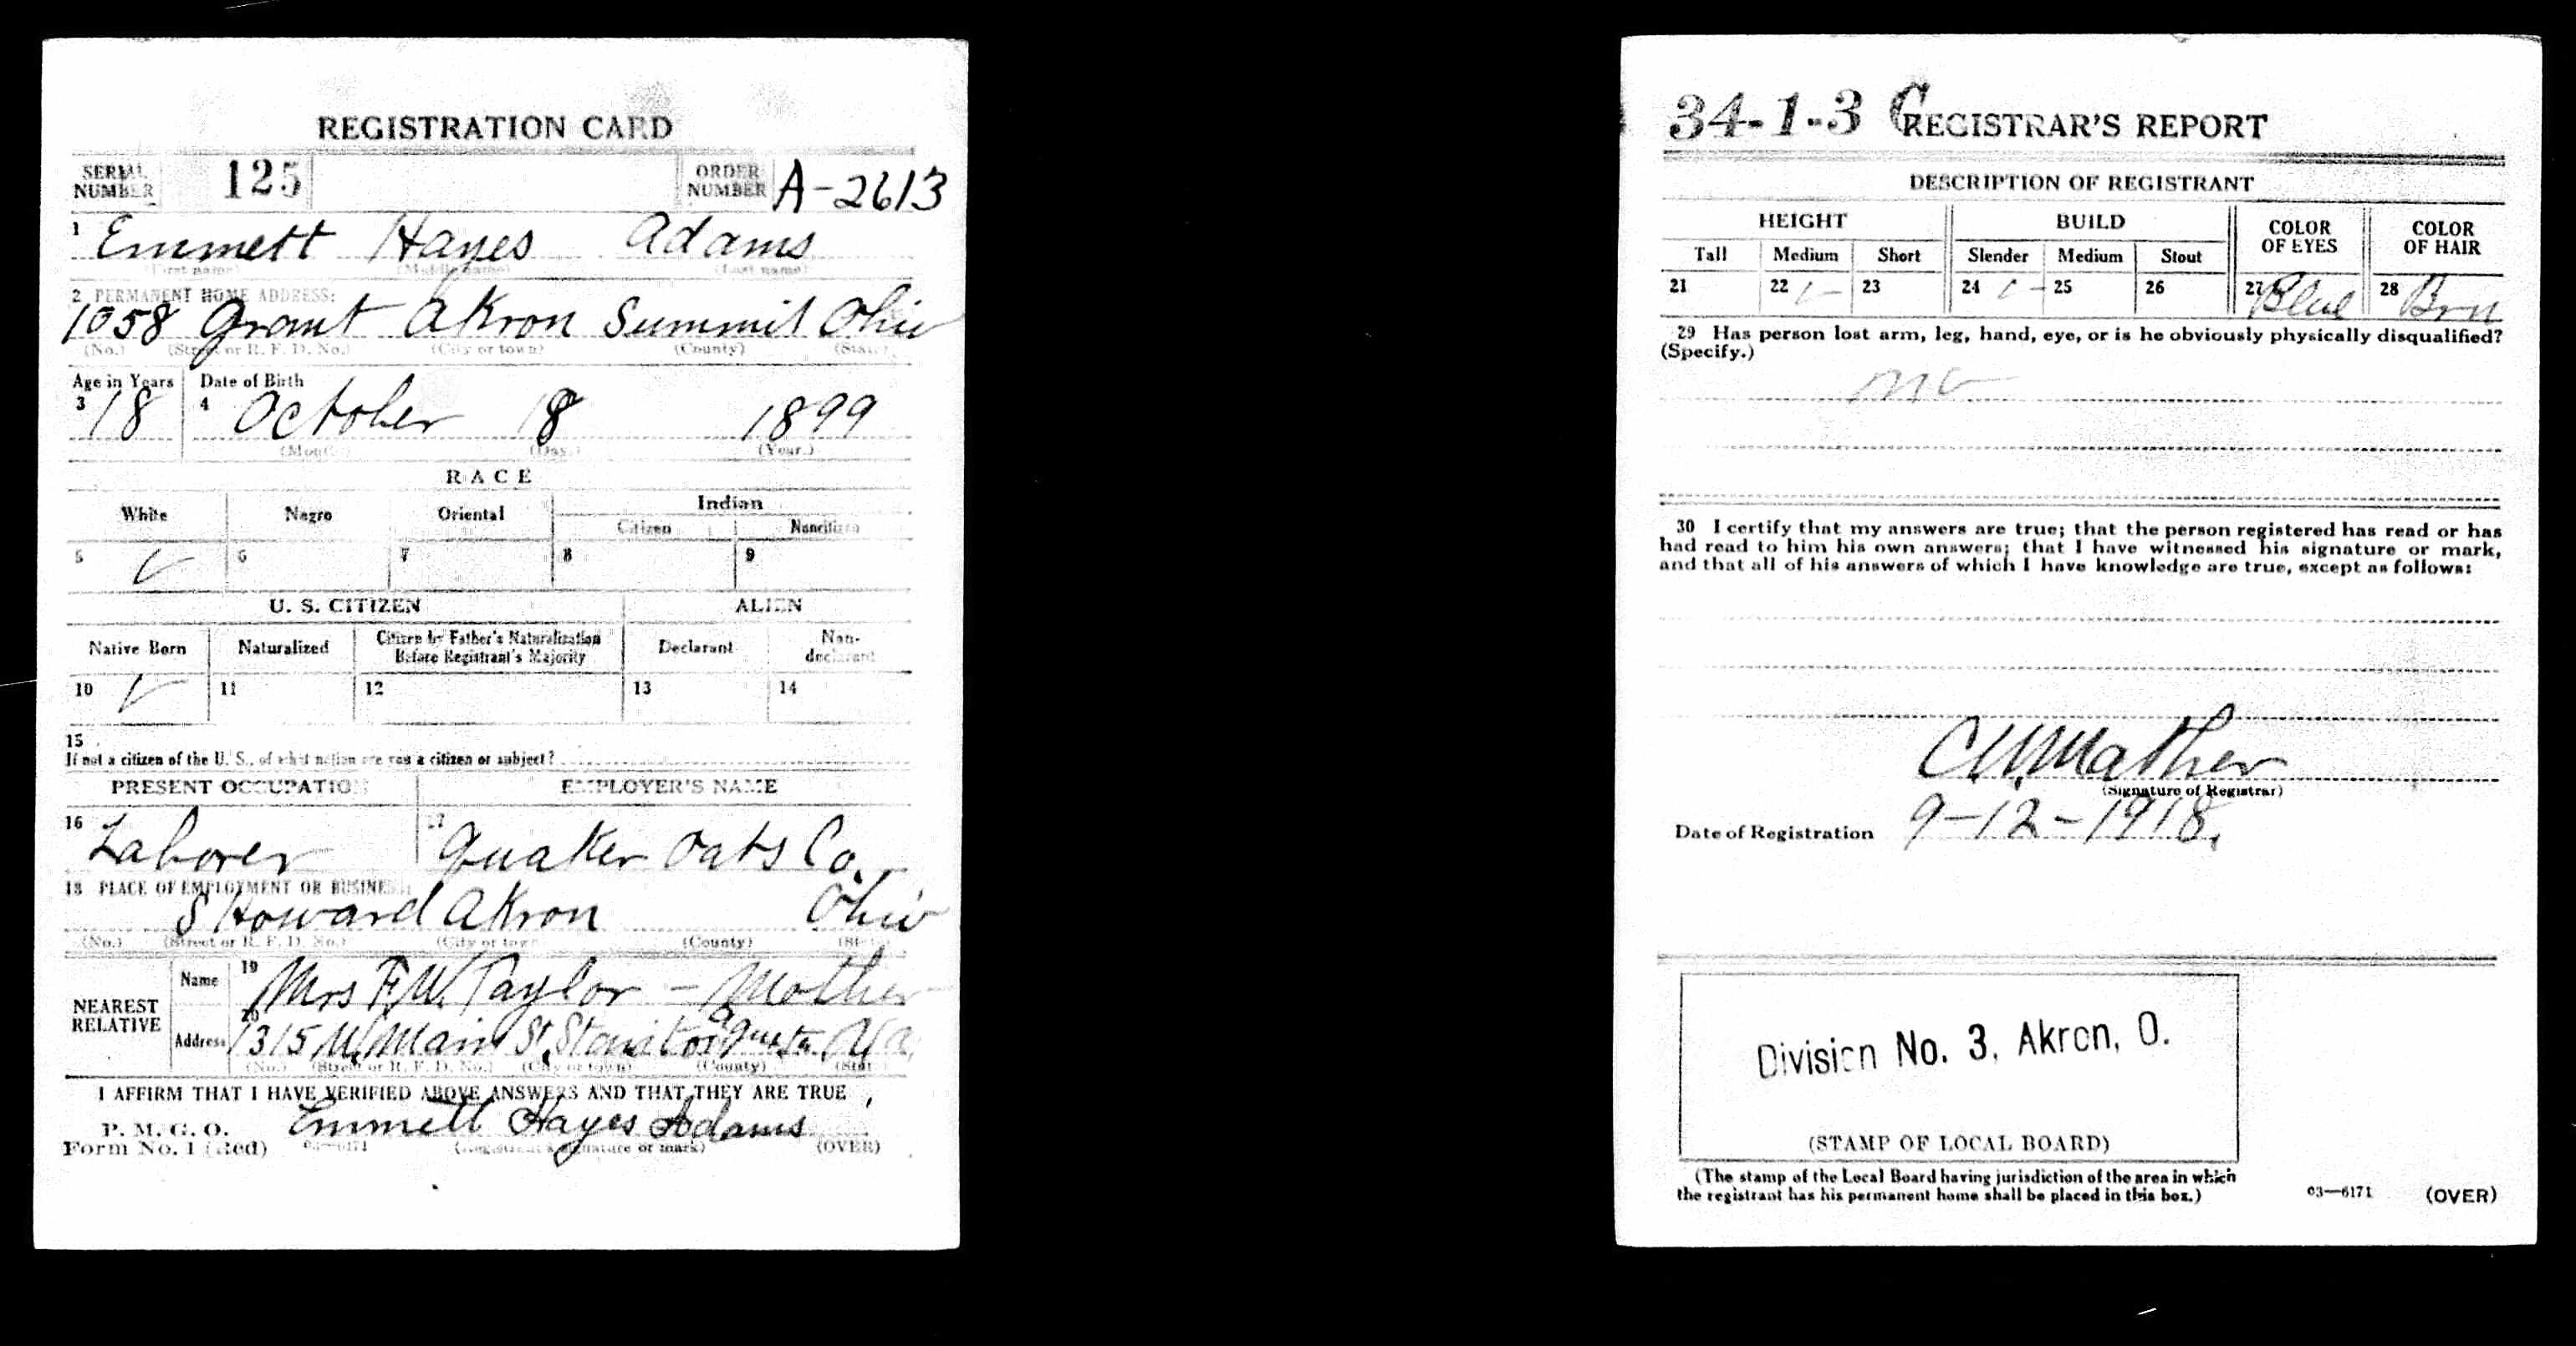 REGISTRATION CARD
SERIAL NUMBER 125 ORDER NUMBER A-2613
1 Emmett Hayes Adams
(First name) (Middle name) (Last name)
2 PERMANENT HOME ADDRESS:
1058 Grant Akron Summit Ohio
(No.) (Street or R. F. D. No.) (City or town) (County) (State)
Age in Years Date of Birth
3 18 4 October 18 1899
(Month.) (Day.) (Year.)
RACE
White Negro Oriental Indian
Citizen Noncitizen
5 ✓ 6 7 8 9
U. S. CITIZEN ALIEN
Native Born Naturalized Citizen by Father's Naturalization Before Registrant's Majority Declarant Non-declarant
10 ✓ 11 12 13 14
15
If not a citizen of the U. S., of what nation are you a citizen or subject?
PRESENT OCCUPATION EMPLOYER'S NAME
16 Laborer 17 Quaker Oats Co.
18 PLACE OF EMPLOYMENT OR BUSINESS:
S Howard Akron Ohio
(No.) (Street or R. F. D. No.) (City or town) (County) (State)
NEAREST RELATIVE
Name 19 Mrs F.W. Taylor - Mother
Address 20 1315 W. Main St. Va
(No.) (Street or R. F. D. No.) (City or town) (County) (State)
I AFFIRM THAT I HAVE VERIFIED ABOVE ANSWERS AND THAT THEY ARE TRUE
P. M. G. O.
Form No. 1 (Red) 03-6171 Emmett Hayes Adams
(Registrant's signature or mark) (OVER)
34-1-3 C
REGISTRAR'S REPORT
DESCRIPTION OF REGISTRANT
HEIGHT BUILD COLOR OF EYES COLOR OF HAIR
Tall Medium Short Slender Medium Stout
21 22 ✓ 23 24 ✓ 25 26 27 Blue 28 Brn
29 Has person lost arm, leg, hand, eye, or is he obviously physically disqualified?
(Specify.)
no
30 I certify that my answers are true; that the person registered has read or has
had read to him his own answers; that I have witnessed his signature or mark,
and that all of his answers of which I have knowledge are true, except as follows:
Mather
(Signature of Registrar)
Date of Registration 9-12-1918.
Division No. 3, Akron, O.
(STAMP OF LOCAL BOARD)
(The stamp of the Local Board having jurisdiction of the area in which
the registrant has his permanent home shall be placed in this box.)
03—6171 (OVER)